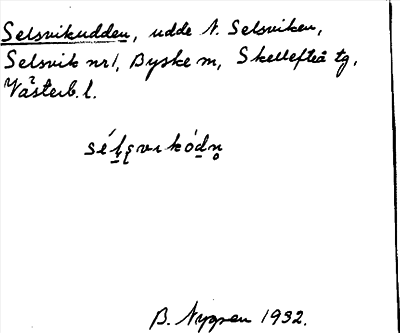 Selsvikudden, udde N. Selsviken,
Selsvik nr 1, Byske m, Skellefteå tg,
Västerb. l.
B. 1932.